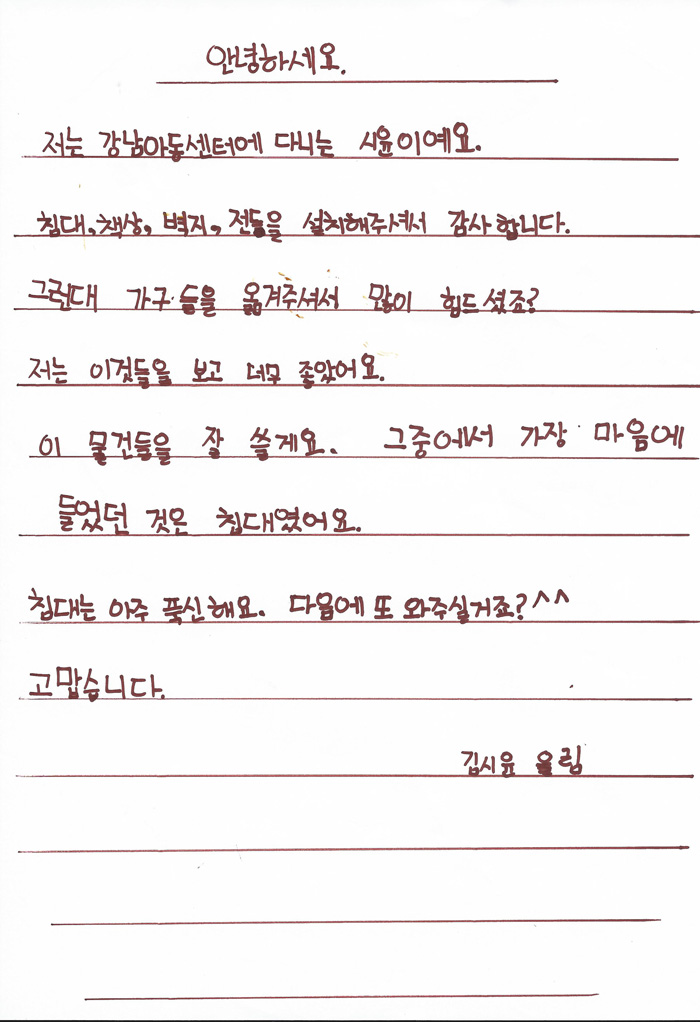 안녕하세요.
저는 강남아동센터에 다니는 시윤이예요.
침대, 책상, 벽지, 전등을 설치해주셔서 감사합니다.
그런대 가구들을 옮겨주셔서 많이 힘드셨죠?
저는 이것들을 보고 너무 좋았어요.
이 물건들을 잘 쓸게요. 그중에서 가장 마음에
들었던 것은 침대였어요.
침대는 아주 푹신해요. 다음에 또 와주실거죠?^^
고맙습니다.
김시윤 올림